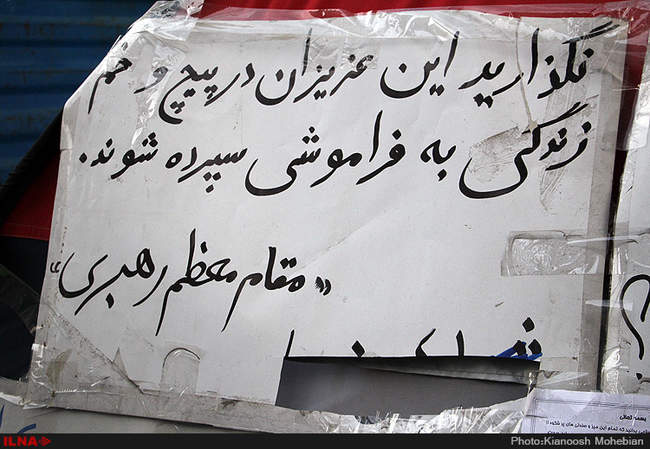 نگذارید این عزیزان در پیچ و خم
زندگی به فراموشی سپرده شوند.
«مقام معظم رهبری»
؟
بسمه تعالی
ILNA
Photo:Kianoosh Mohebian